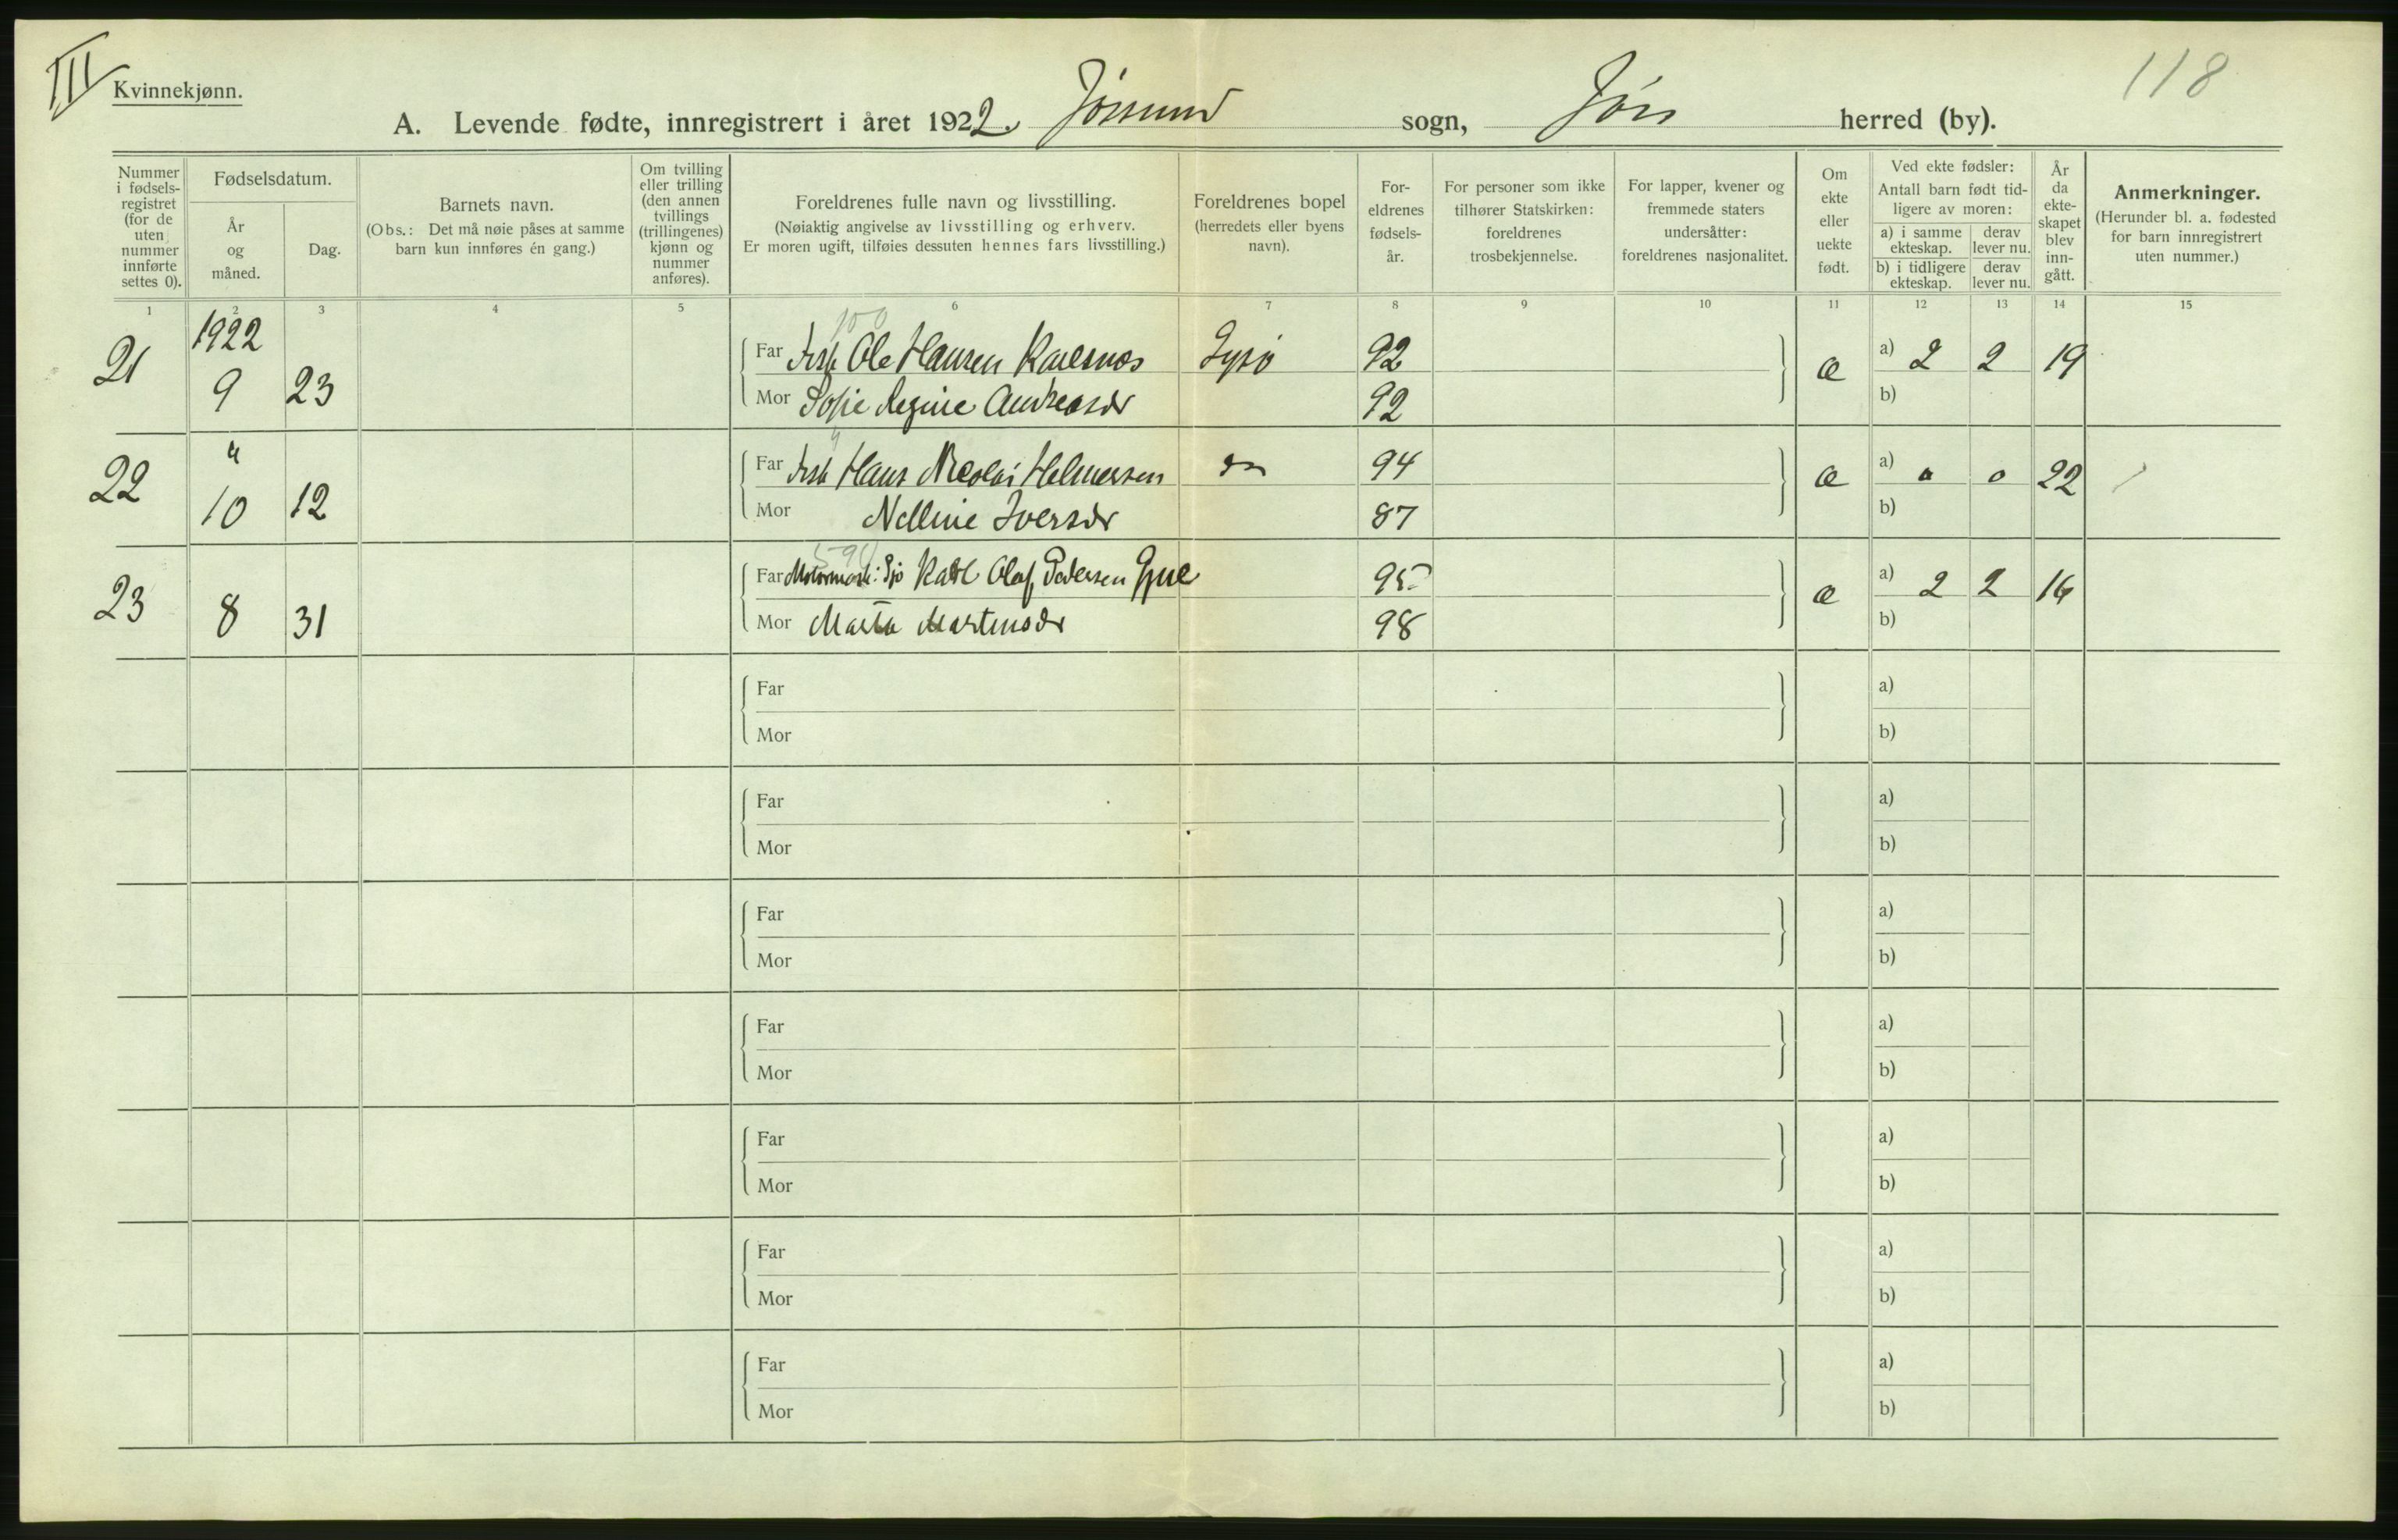 III
Kvinnekjønn.
118
A. Levende fødte, innregistrert i året 1922. Jøssund sogn, Jøss herred (by).
Nummer i fødselsregistret (for de uten nummer innførte settes 0).
Fødselsdatum.
År og måned.
Dag.
Barnets navn.
(Obs.: Det må nøie påses at samme barn kun innføres én gang.)
Om tvilling eller trilling (den annen tvillings (trillingenes) kjønn og nummer anføres).
Foreldrenes fulle navn og livsstilling.
(Nøiaktig angivelse av livsstilling og erhverv.
Er moren ugift, tilføies dessuten hennes fars livsstilling.)
Foreldrenes bopel
(herredets eller byens navn).
Foreldrenes fødselsår.
For personer som ikke tilhører Statskirken: foreldrenes trosbekjennelse.
For lapper, kvener og fremmede staters undersåtter: foreldrenes nasjonalitet.
Om ekte eller uekte født.
Ved ekte fødsler:
Antall barn født tidligere av moren:
a) i samme ekteskap.
derav lever nu.
b) i tidligere ekteskap.
derav lever nu.
År da ekteskapet blev inngått.
Anmerkninger.
(Herunder bl. a. fødested for barn innregistrert uten nummer.)
1 2 3 4 5 6 7 8 9 10 11 12 13 14 15
100
21 1922 9 23 Far Fisk Ole Hansen Karlsnes Lysø 92 e a) 2 2 19
Mor Sofie Regine Andreasdr 92 b)
22 " 10 12 Far Fisk Hans Nicolai Helmersen do 94 e a) o o 22
Mor Nelline Iversdr 87 b)
23 8 31 Far Olaf Pedersen 95 e a) 2 2 16
Mor Marta Martinsdr 98 b)
Far a)
Mor b)
Far a)
Mor b)
Far a)
Mor b)
Far a)
Mor b)
Far a)
Mor b)
Far a)
Mor b)
Far a)
Mor b)